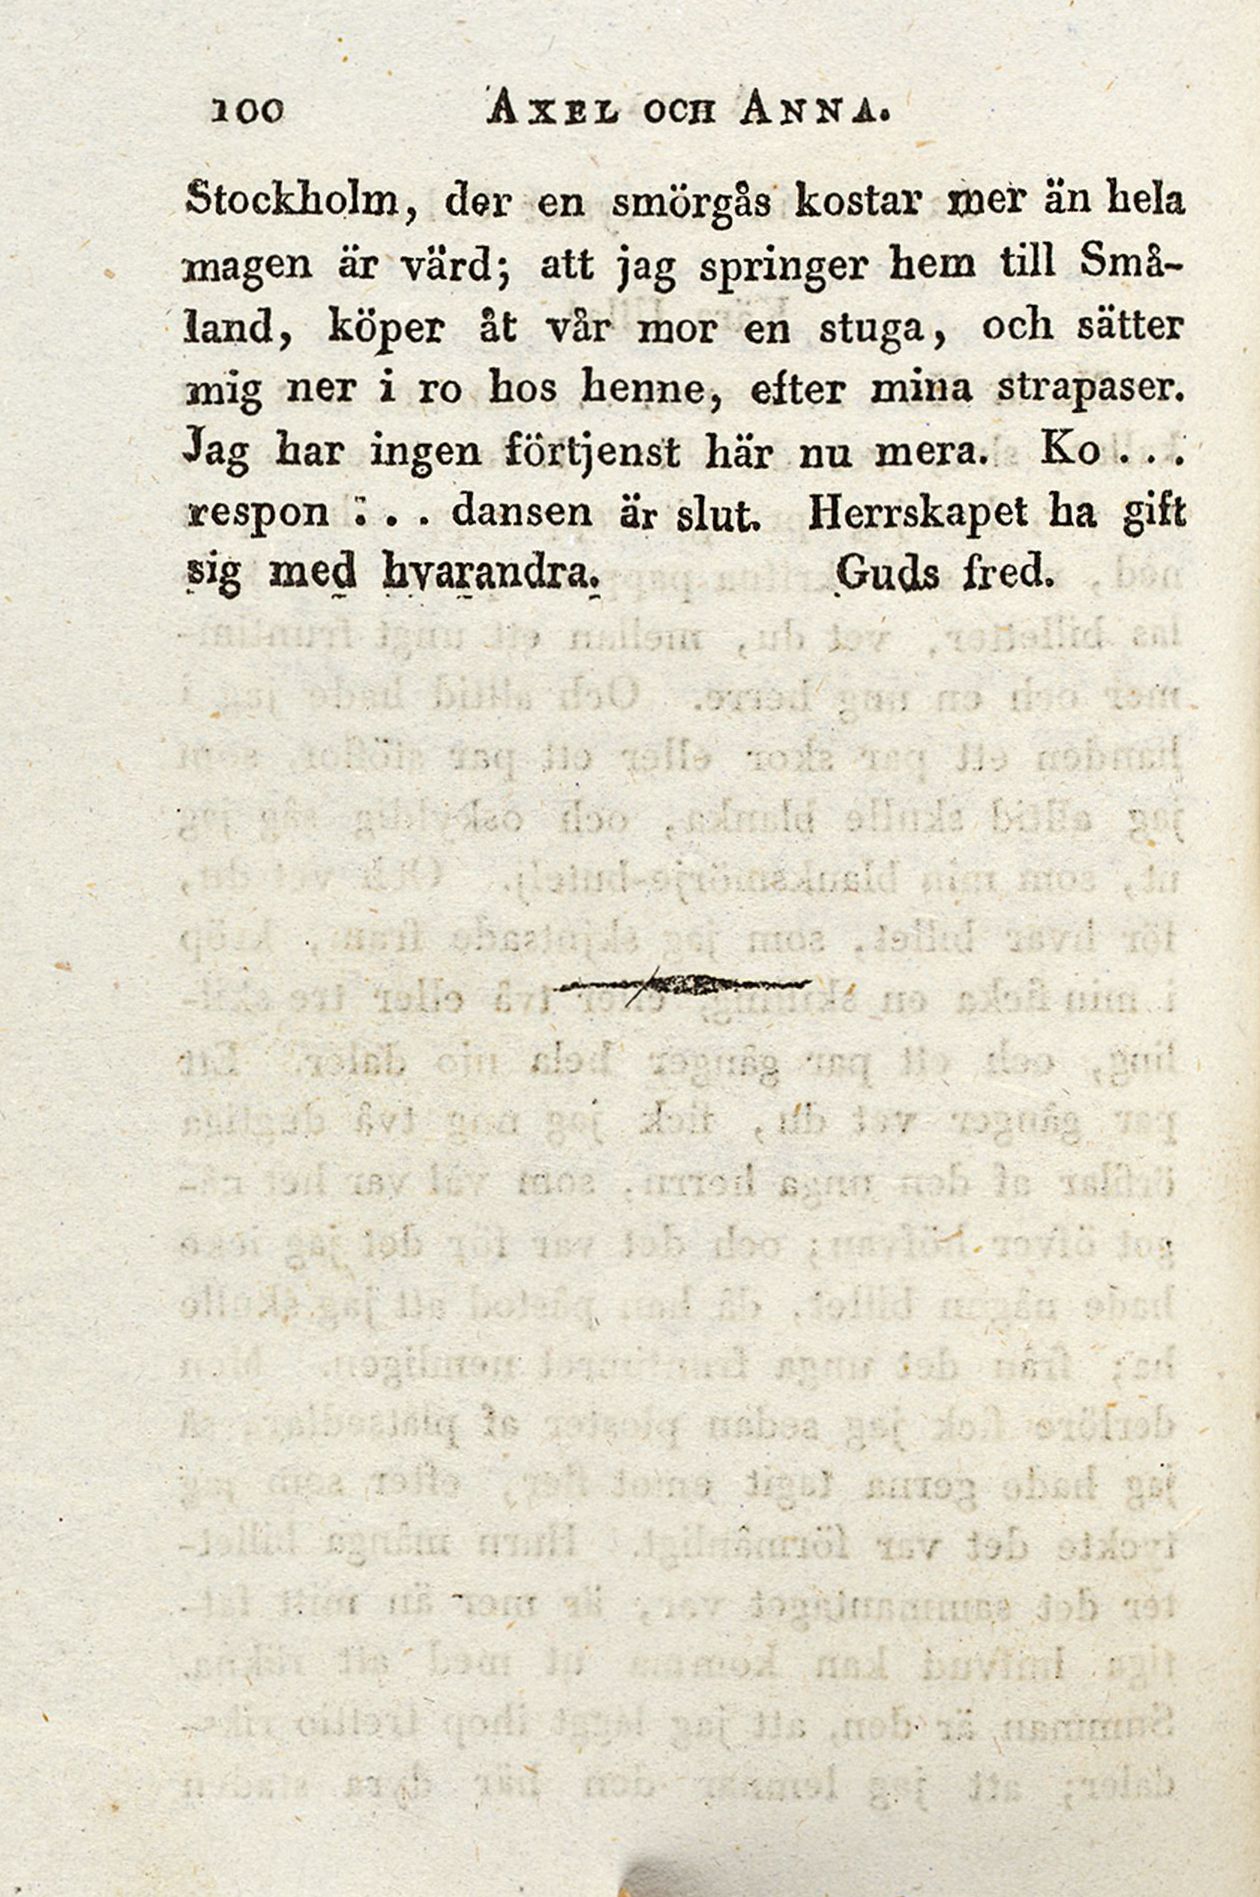 100 AXEL OCH ANNA.
Stockholm, der en smörgås kostar mer än hela
magen är värd; att jag springer hem till Små-
land, köper åt vår mor en stuga, och sätter
mig ner i ro hos henne, efter mina strapaser.
Jag har ingen förtjenst här nu mera. Ko . . .
respon . . . dansen är slut. Herrskapet ha gift
sig med hvarandra. Guds fred.